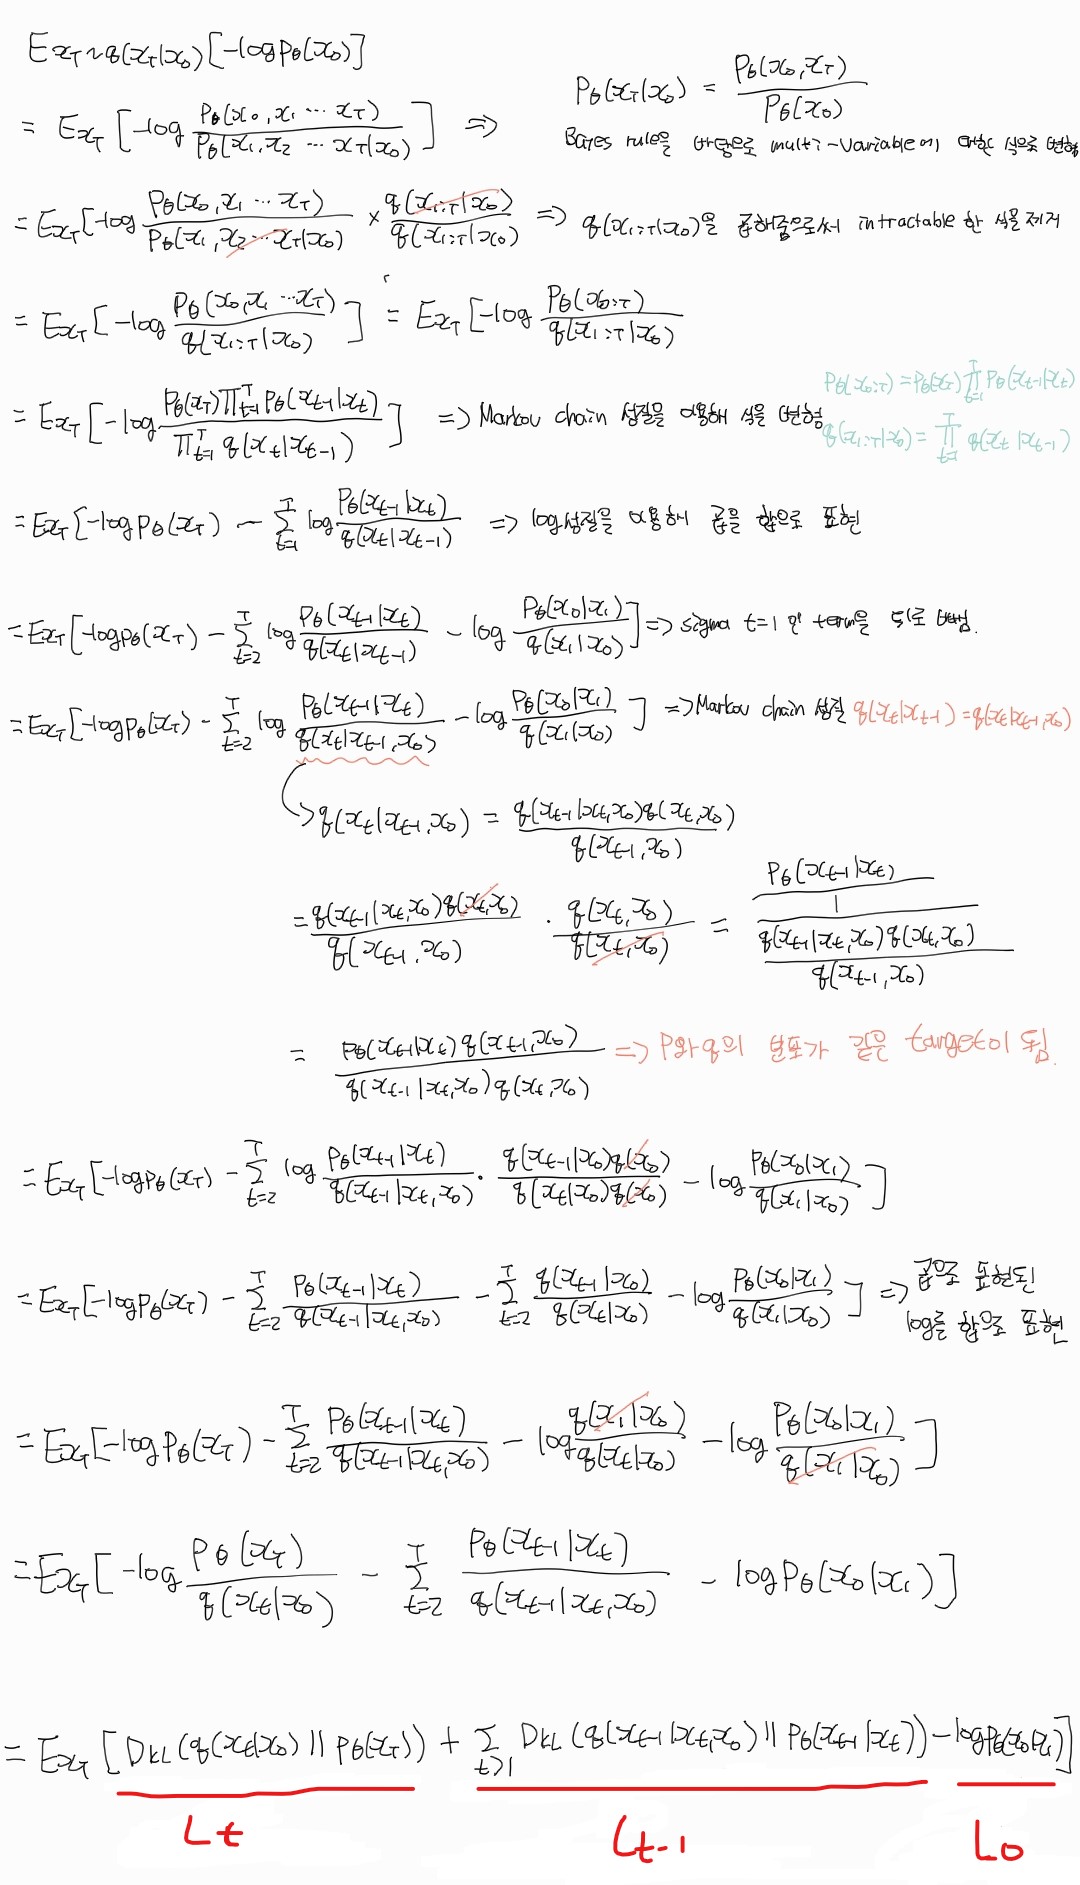 E_{x_T∼q(x_T|x_0)}[-log p_θ(x_0)]
p_θ(x_T|x_0) = p_θ(x_0, x_T) / p_θ(x_0)
= E_{x_T}[-log p_θ(x_0, x_1 ⋯ x_T) / p_θ(x_1, x_2 ⋯ x_T|x_0)] ⇒
Bayes rule을 바탕으로 multi-variable에 대한 식으로 변형
= E_{x_T}[-log p_θ(x_0, x_1 ⋯ x_T) / p_θ(x_1, x_2 ⋯ x_T|x_0) × q(x_{1:T}|x_0) / q(x_{1:T}|x_0) ⇒ q(x_{1:T}|x_0)을 곱해줌으로써 intractable한 식을 제거
= E_{x_T}[-log p_θ(x_0, x_1 ⋯ x_T) / q(x_{1:T}|x_0)] = E_{x_T}[-log p_θ(x_{0:T}) / q(x_{1:T}|x_0)
p_θ(x_{0:T}) = p_θ(x_T) ∏_{t=1}^T p_θ(x_{t-1}|x_t)
= E_{x_T}[-log p_θ(x_T) ∏_{t=1}^T p_θ(x_{t-1}|x_t) / ∏_{t=1}^T q(x_t|x_{t-1})] ⇒ Markov chain 성질을 이용해 식을 변형
q(x_{1:T}|x_0) = ∏_{t=1}^T q(x_t|x_{t-1})
= E_{x_T}[-log p_θ(x_T) - ∑_{t=1}^T log p_θ(x_{t-1}|x_t) / q(x_t|x_{t-1}) ⇒ log성질을 이용해 곱을 합으로 표현
= E_{x_T}[-log p_θ(x_T) - ∑_{t=2}^T log p_θ(x_{t-1}|x_t) / q(x_t|x_{t-1}) - log p_θ(x_0|x_1) / q(x_1|x_0)] ⇒ sigma t=1인 term을 뒤로 뺌.
= E_{x_T}[-log p_θ(x_T) - ∑_{t=2}^T log p_θ(x_{t-1}|x_t) / q(x_t|x_{t-1}, x_0) - log p_θ(x_0|x_1) / q(x_1|x_0)] ⇒ Markov chain 성질 q(x_t|x_{t-1}) = q(x_t|x_{t-1}, x_0)
→ q(x_t|x_{t-1}, x_0) = q(x_{t-1}|x_t, x_0)q(x_t, x_0) / q(x_{t-1}, x_0)
= q(x_{t-1}|x_t, x_0)q(x_t, x_0) / q(x_{t-1}, x_0) · q(x_t, x_0) / q(x_t, x_0) = (p_θ(x_{t-1}|x_t) / 1) / (q(x_{t-1}|x_t, x_0)q(x_t, x_0) / q(x_{t-1}, x_0))
= p_θ(x_{t-1}|x_t) q(x_{t-1}, x_0) / q(x_{t-1}|x_t, x_0)q(x_t, x_0) ⇒ P와 q의 분포가 같은 target이 됨.
= E_{x_T}[-log p_θ(x_T) - ∑_{t=2}^T log p_θ(x_{t-1}|x_t) / q(x_{t-1}|x_t, x_0) · q(x_{t-1}|x_0)q(x_0) / q(x_t|x_0)q(x_0) - log p_θ(x_0|x_1) / q(x_1|x_0)]
= E_{x_T}[-log p_θ(x_T) - ∑_{t=2}^T p_θ(x_{t-1}|x_t) / q(x_{t-1}|x_t, x_0) - ∑_{t=2}^T q(x_{t-1}|x_0) / q(x_t|x_0) - log p_θ(x_0|x_1) / q(x_1|x_0)] ⇒ 곱으로 표현된
log를 합으로 표현
= E_{x_T}[-log p_θ(x_T) - ∑_{t=2}^T p_θ(x_{t-1}|x_t) / q(x_{t-1}|x_t, x_0) - log q(x_1|x_0) / q(x_t|x_0) - log p_θ(x_0|x_1) / q(x_1|x_0)]
= E_{x_T}[-log p_θ(x_T) / q(x_t|x_0) - ∑_{t=2}^T p_θ(x_{t-1}|x_t) / q(x_{t-1}|x_t, x_0) - log p_θ(x_0|x_1)]
= E_{x_T}[D_KL(q(x_t|x_0) || p_θ(x_T)) + ∑_{t>1} D_KL(q(x_{t-1}|x_t, x_0) || p_θ(x_{t-1}|x_t)) - log p_θ(x_0|x_1)]
L_t L_{t-1} L_0